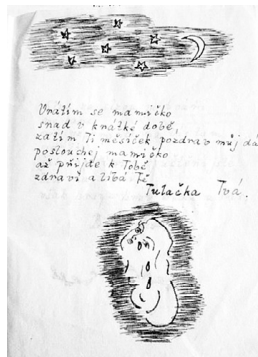 Vrátím se mamičko
snad v krátké době,
zatím Ti měsíček pozdrav můj dá
poslouchej mamičko
až přijde k Tobě
zdraví a líbá Tě
Tulačka Tvá.